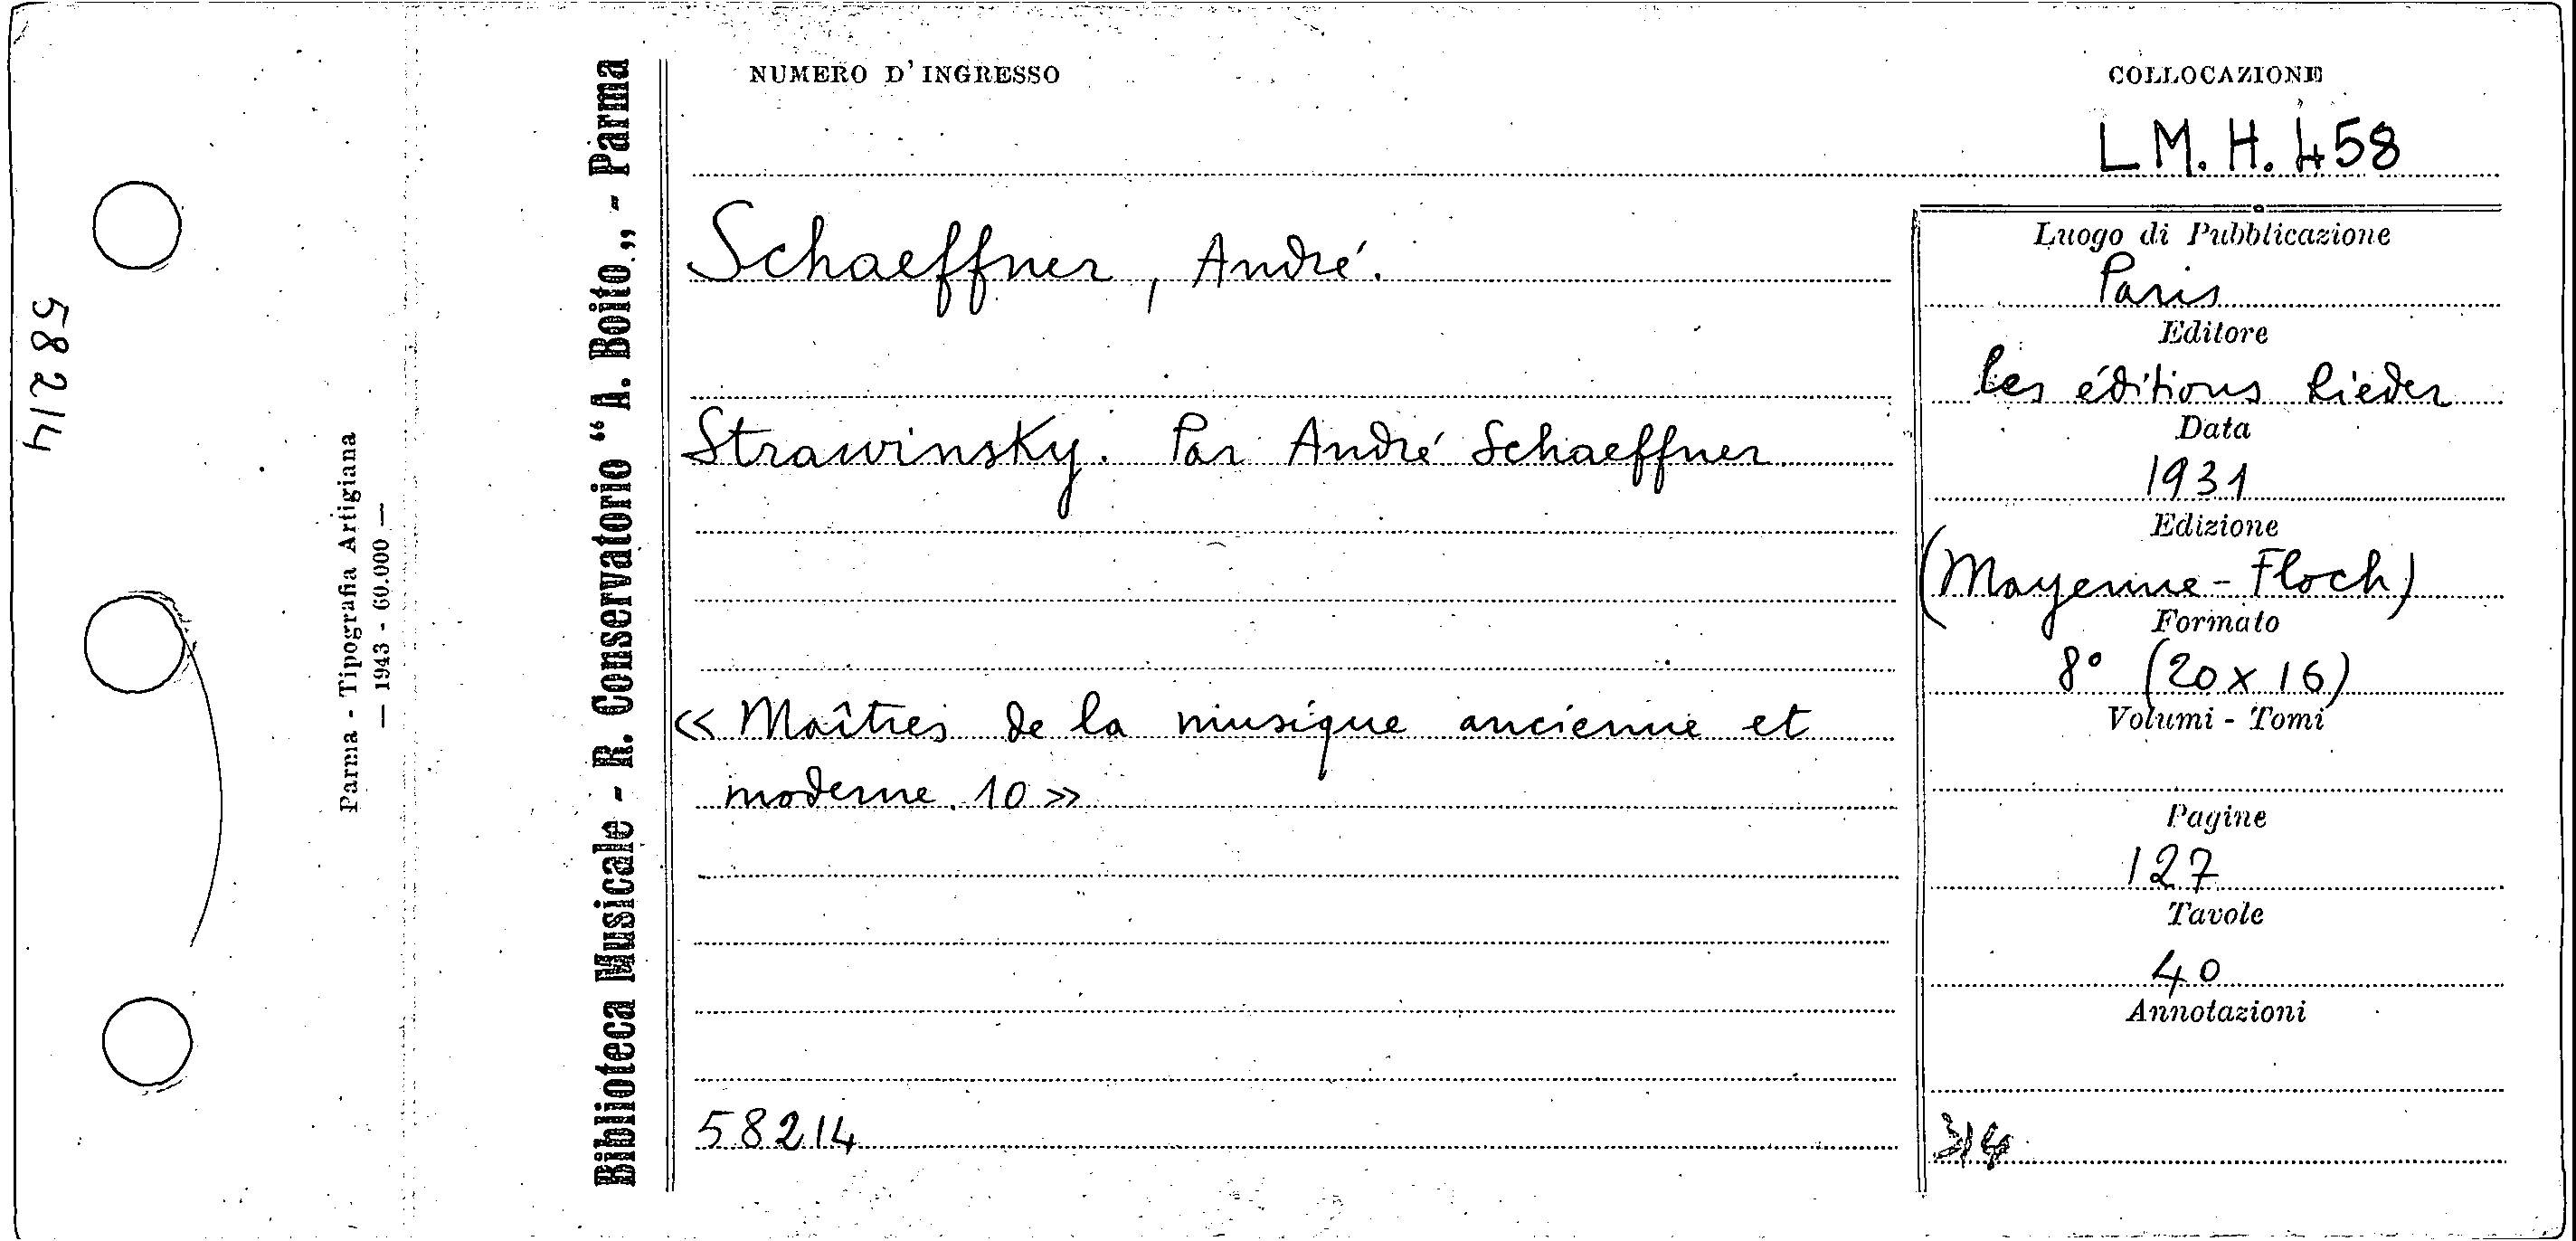 NUMERO D'INGRESSO
COLLOCAZIONE
L M. H. 458
Schaeffner, André.
Strawinsky. Par André Schaeffner
« Maîtres de la musique ancienne et
moderne. 10 »
58214
Luogo di Pubblicazione
Paris
Editore
les éditions Rieder
Data
1931
Edizione
(Mayenne - Floch)
Formato
8° (20 x 16)
Volumi - Tomi
Pagine
127
Tavole
40
Annotazioni
314
Biblioteca Musicale - R. Conservatorio "A. Boito,, - Parma
Parma - Tipografia Artigiana
— 1943 - 60.000 —
58214